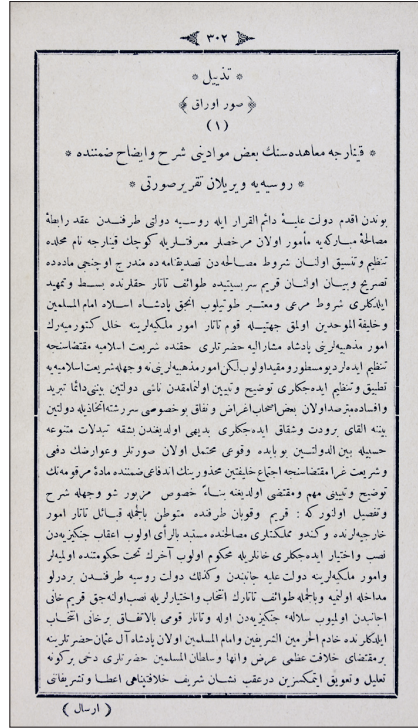 ٣٠٢
* تذييل *
﴿ صور اوراق ﴾
(١)
* قينارجه معاهده‌سنك بعض موادينى شرح وايضاح ضمننده *
* روسيه‌يه ويريلان تقرير صورتى *
بوندن اقدم دولت عليۀ دائم القرار ايله روسيه دولتى طرفندن عقد رابطۀ
مصالحۀ مباركه‌يه مأمور اولان مرخصلر معرفتلريله كوچك قينارجه نام محلده
تنظيم وتنسيق اولنان شروط مصالحه‌دن تصديقنامه‌ده مندرج اوچنجى ماده‌ده
تصريح وبيان اولنان قريم سربسيتيده طوائف تاتار حقلرنده بسط وتمهيد
ايلدكلرى شروط مرعى ومعتبر طوتيلوب انجق پادشاه اسلام امام المسلمين
وخليفة الموحدين اولمق جهتيله قوم تاتار امور ملكيه‌لرينه خلل كتورميه‌رك
امور مذهبيه‌لرينى پادشاه مشاراليه حضرتلرى حقنده شريعت اسلاميه مقتضاسنجه
تنظيم ايده‌لر ديو مسطور ومقيد اولوب لكن امور مذهبيه‌لرينى نه وجهله شريعت اسلاميه‌يه
تطبيق وتنظيم ايده‌جكلرى توضيح وتبيين اولنمامقدن ناشى دولتين بيننى دائما تبريد
وافساده مترصد اولان بعض اصحاب اغراض ونفاق بو خصوصى سررشته اتخاذيله دولتين
بيننه القاى برودت وشقاق ايده‌جكلرى بديهى اولديغندن بشقه تبدلات متنوعه
حسبيله بين الدولتين بو بابده وقوعى محتمل اولان صورتلر وعوارضك دفعى
وشريعت غرا مقتضاسنجه اجتماع خليفتين محذورينك اندفاعى ضمننده مادۀ مرقومه‌نك
توضيح وتبيينى مهم ومقتضى اولديغنه بناءً خصوص مزبور شو وجهله شرح
وتفصيل اولنوركه : قريم وقوبان طرفنده متوطن بالجمله قبائل تاتار امور
خارجيه‌لرنده وكندو مملكتلرى مصالحنده مستبد بالرأى اولوب اعقاب جنكيزيه‌دن
نصب واختيار ايده‌جكلرى خانلريله محكوم اولوب آخرك تحت حكومتنده اولميه‌لر
وامور ملكيه‌لرينه دولت عليه جانبندن وكذلك دولت روسيه طرفندن بردرلو
مداخله اولنميه وبالجمله طوائف تاتارك انتخاب واختيارلريله نصب اولنه‌جق قريم خانى
اجانبدن اولميوب سلالۀ جنكيزيه‌دن اوله وتاتار قومى بالاتفاق بر خانى انتخاب
ايلدكلرنده خادم الحرمين الشريفين وامام المسلمين اولان پادشاه آل عثمان حضرتلرينه
بر مقتضاى خلافت عظمى عرض وانها وسلطان المسلمين حضرتلرى دخى بركونه
تعليل وتعويق ايتمكسزين درعقب نشان شريف خلافتپناهى اعطا وتشريفاتى
( ارسال )